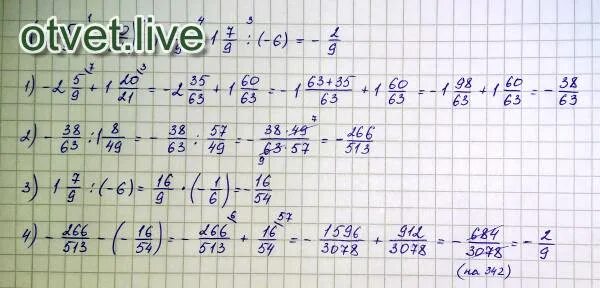 otvet.live
1 7/9 : (-6) = - 2/9
1) -2 5/9 + 1 20/21 = -2 35/63 + 1 60/63 = -1 (63+35)/63 + 1 60/63 = -1 98/63 + 1 60/63 = - 38/63
2) - 38/63 : 1 8/49 = - 38/63 : 57/49 = - (38·49)/(63·57) = - 266/513
3) 1 7/9 : (-6) = 16/9 · (- 1/6) = - 16/54
4) - 266/513 - (- 16/54) = - 266/513 + 16/54 = - 1596/3078 + 912/3078 = - 684/3078 = - 2/9
(на 342)